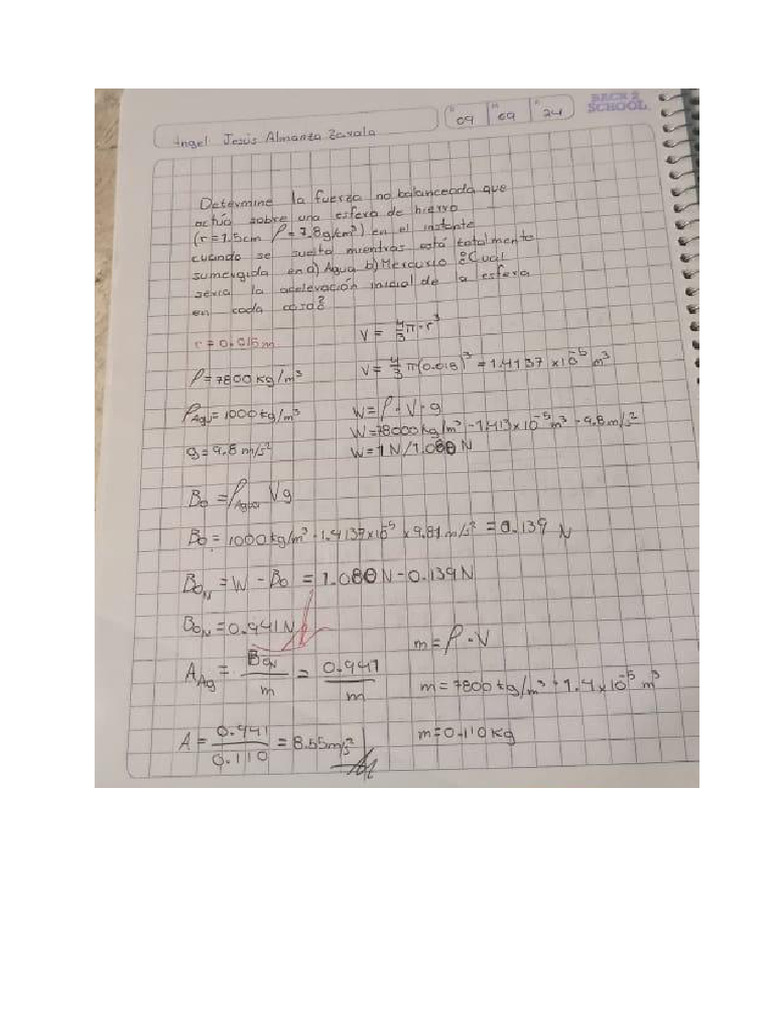 BACK 2
SCHOOL
09 09 24
Angel Jesús Almanza Zavala
Determine la fuerza no balanceada que
actúa sobre una esfera de hierro
(r=1.5cm ρ=7.8g/cm³) en el instante
cuando se suelta mientras está totalmente
sumergida en a) Agua b) Mercurio ¿Cuál
sería la aceleración inicial de la esfera
en cada caso?
r=0.015m
V= 4/3 π·r³
ρ=7800kg/m³
V= 4/3 π(0.015)³ = 1.4137×10⁻⁵ m³
ρAgu=1000kg/m³
W=ρ·V·g
W=78000kg/m³ - 1.413×10⁻⁵m³ - 9.8m/s²
g=9.8m/s²
W=1N/1.080N
Bo=ρAgua Vg
Bo=1000kg/m³·1.4137×10⁻⁵×9.81m/s²=0.139 N
BoN=W-Bo=1.080N-0.139N
BoN=0.941N
m=ρ·V
AAg= BoN/m = 0.941/m
m=7800kg/m³·1.4×10⁻⁵m³
A=0.941/0.110=8.55m/s²
m=0.110kg